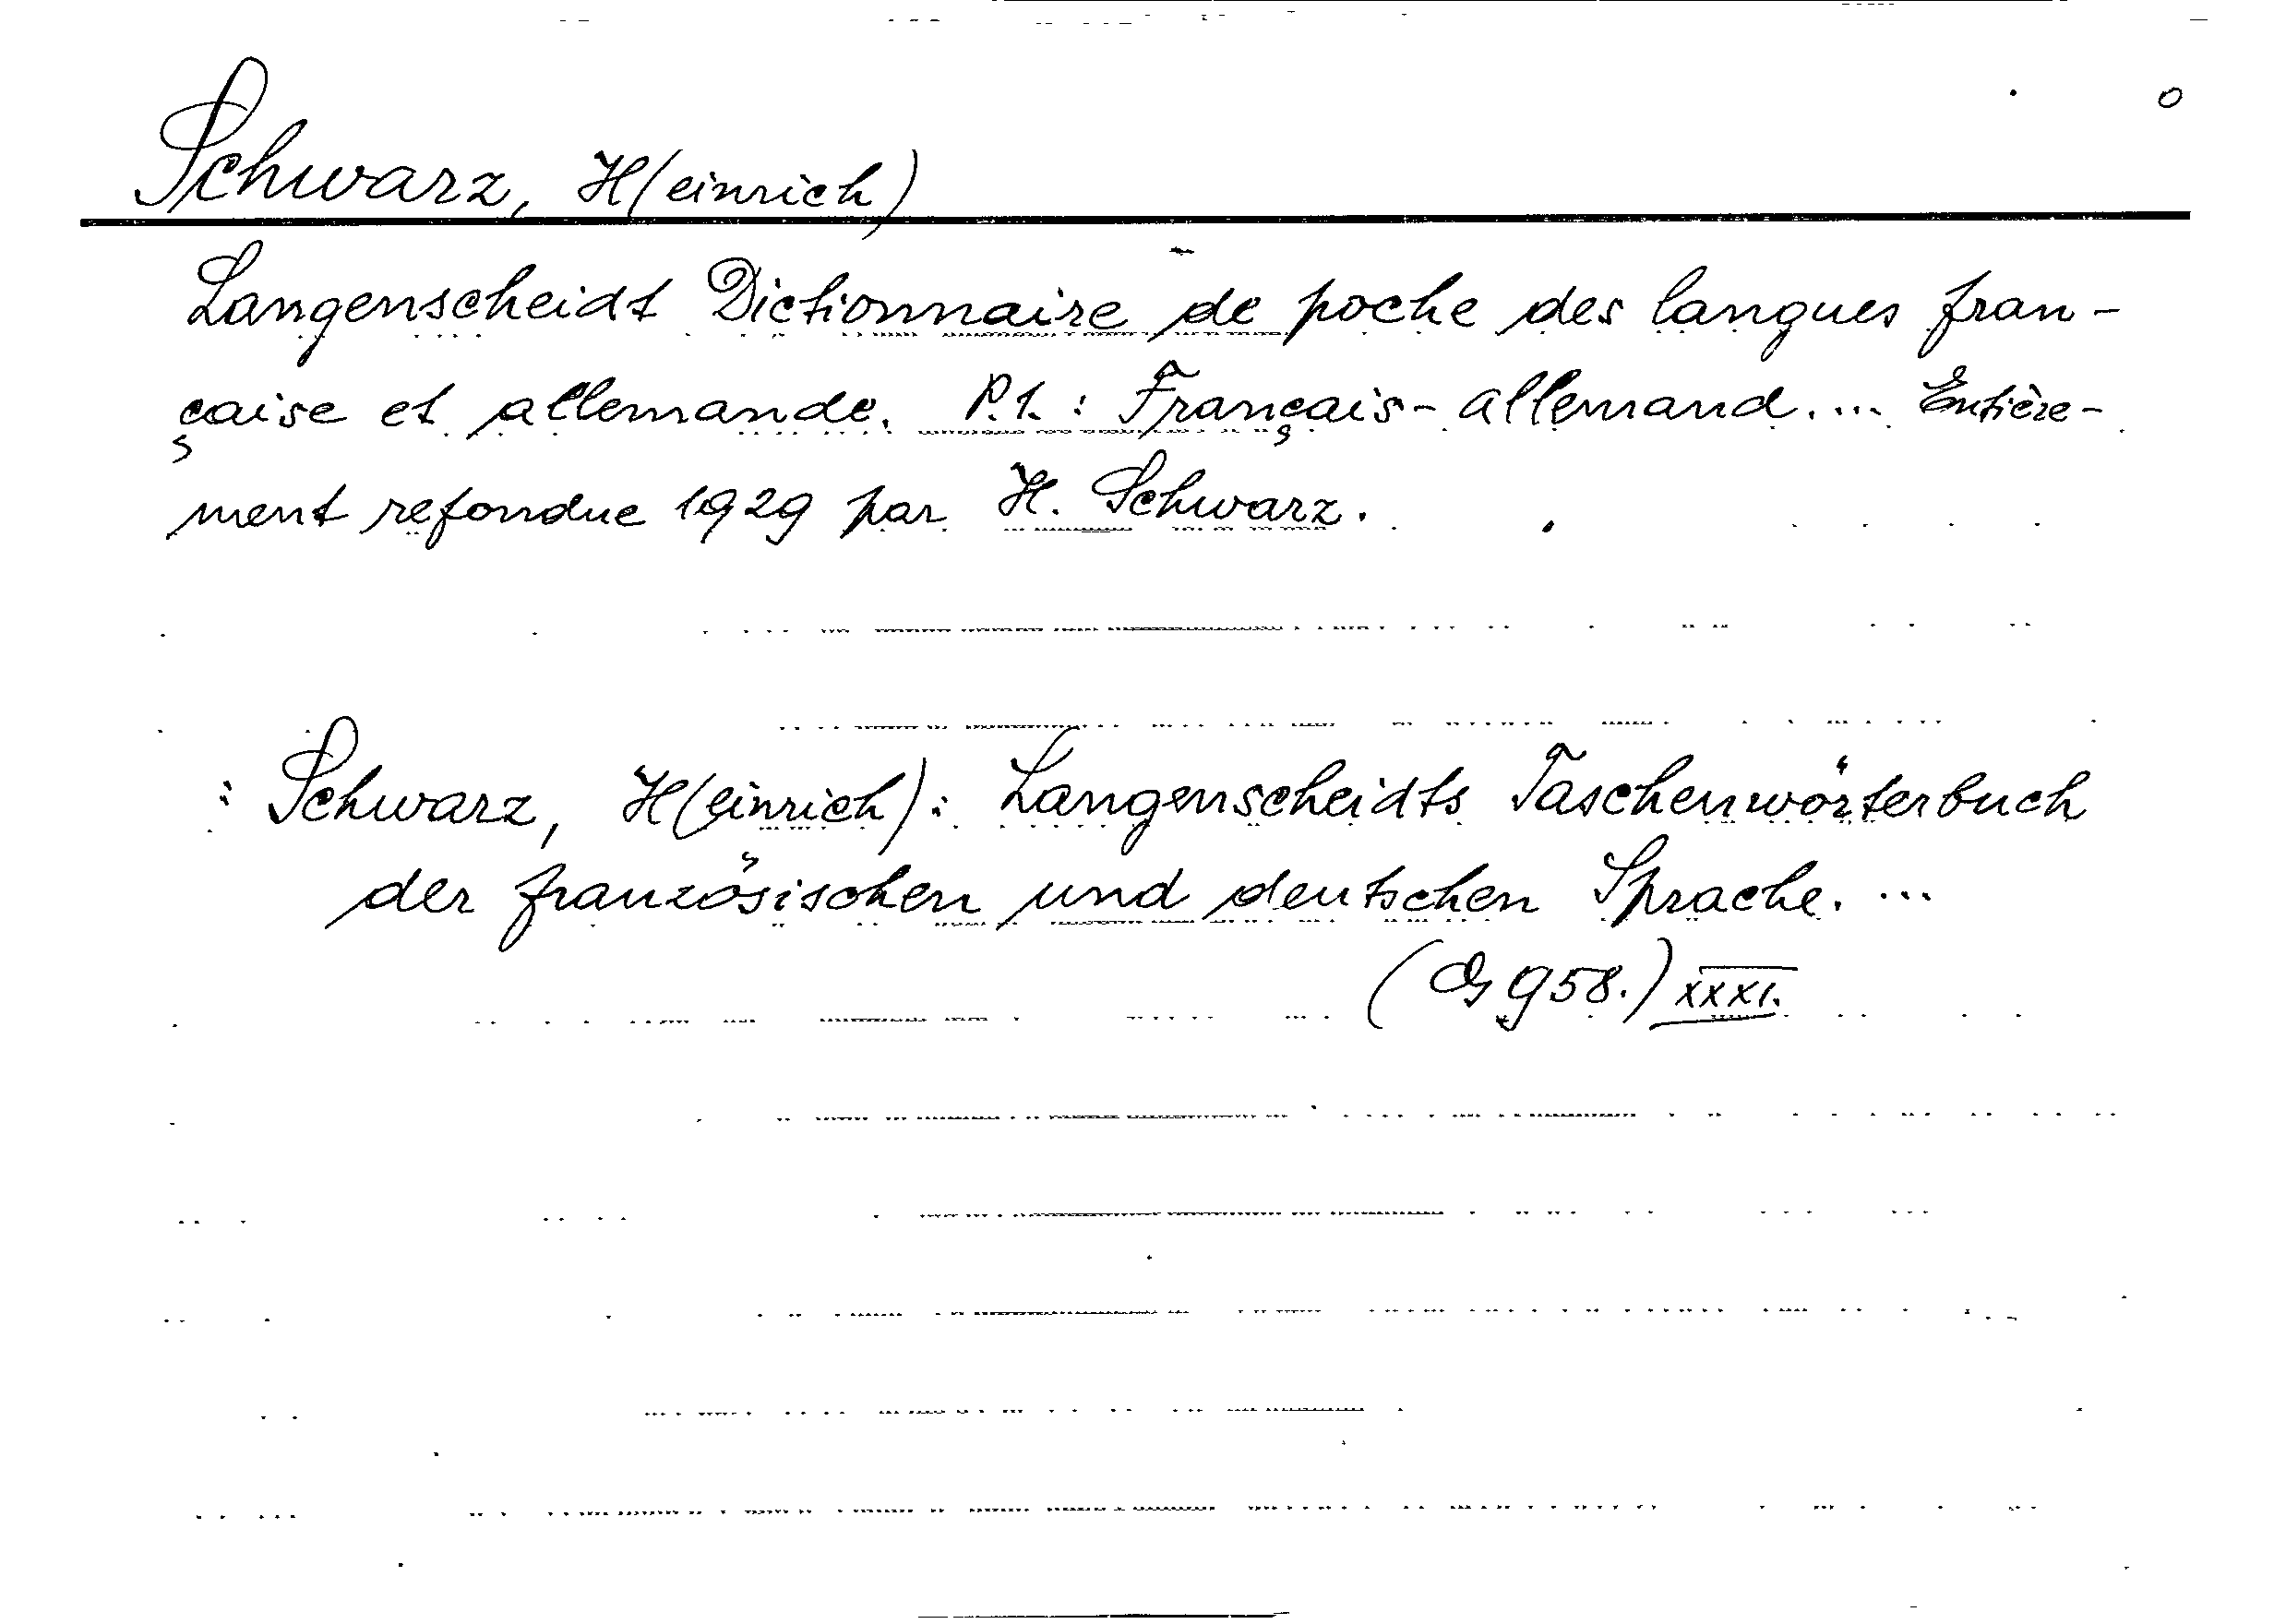 Schwarz, H(einrich)
Langenscheidt Dictionnaire de poche des langues fran-
çaise et allemande. P.1. : Français-allemand. ... Entière-
ment refondue 1929 par H. Schwarz.
: Schwarz, H(einrich): Langenscheidts Taschenwörterbuch
der französischen und deutschen Sprache. ...
958.) XXXI.